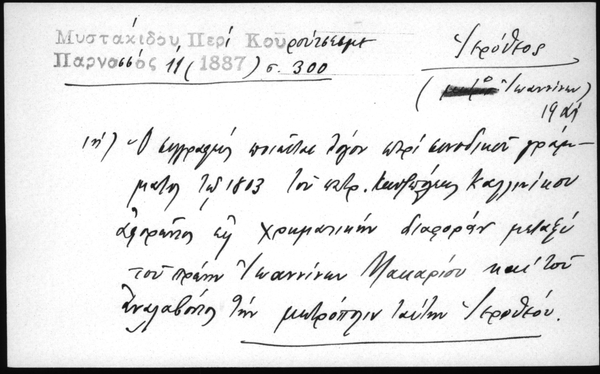 Μυστακίδου, Περί Κουρούτσεσμε
Παρνασσός 11 (1887) σ. 300
Ἱερόθεος
(ὁ Ἰωαννίνων)
19ος
Ὁ συγγραφεύς ποιεῖται λόγον περί συνοδικοῦ γράμ-
ματος τοῦ 1803 τοῦ πατρ. Κων/πόλεως Καλλινίκου
ἀφορῶντος εἰς χρηματικήν διαφοράν μεταξύ
τοῦ πρώην Ἰωαννίνων Μακαρίου καί τοῦ
ἀναλαβόντος τήν μητρόπολιν ταύτην Ἱεροθέου.